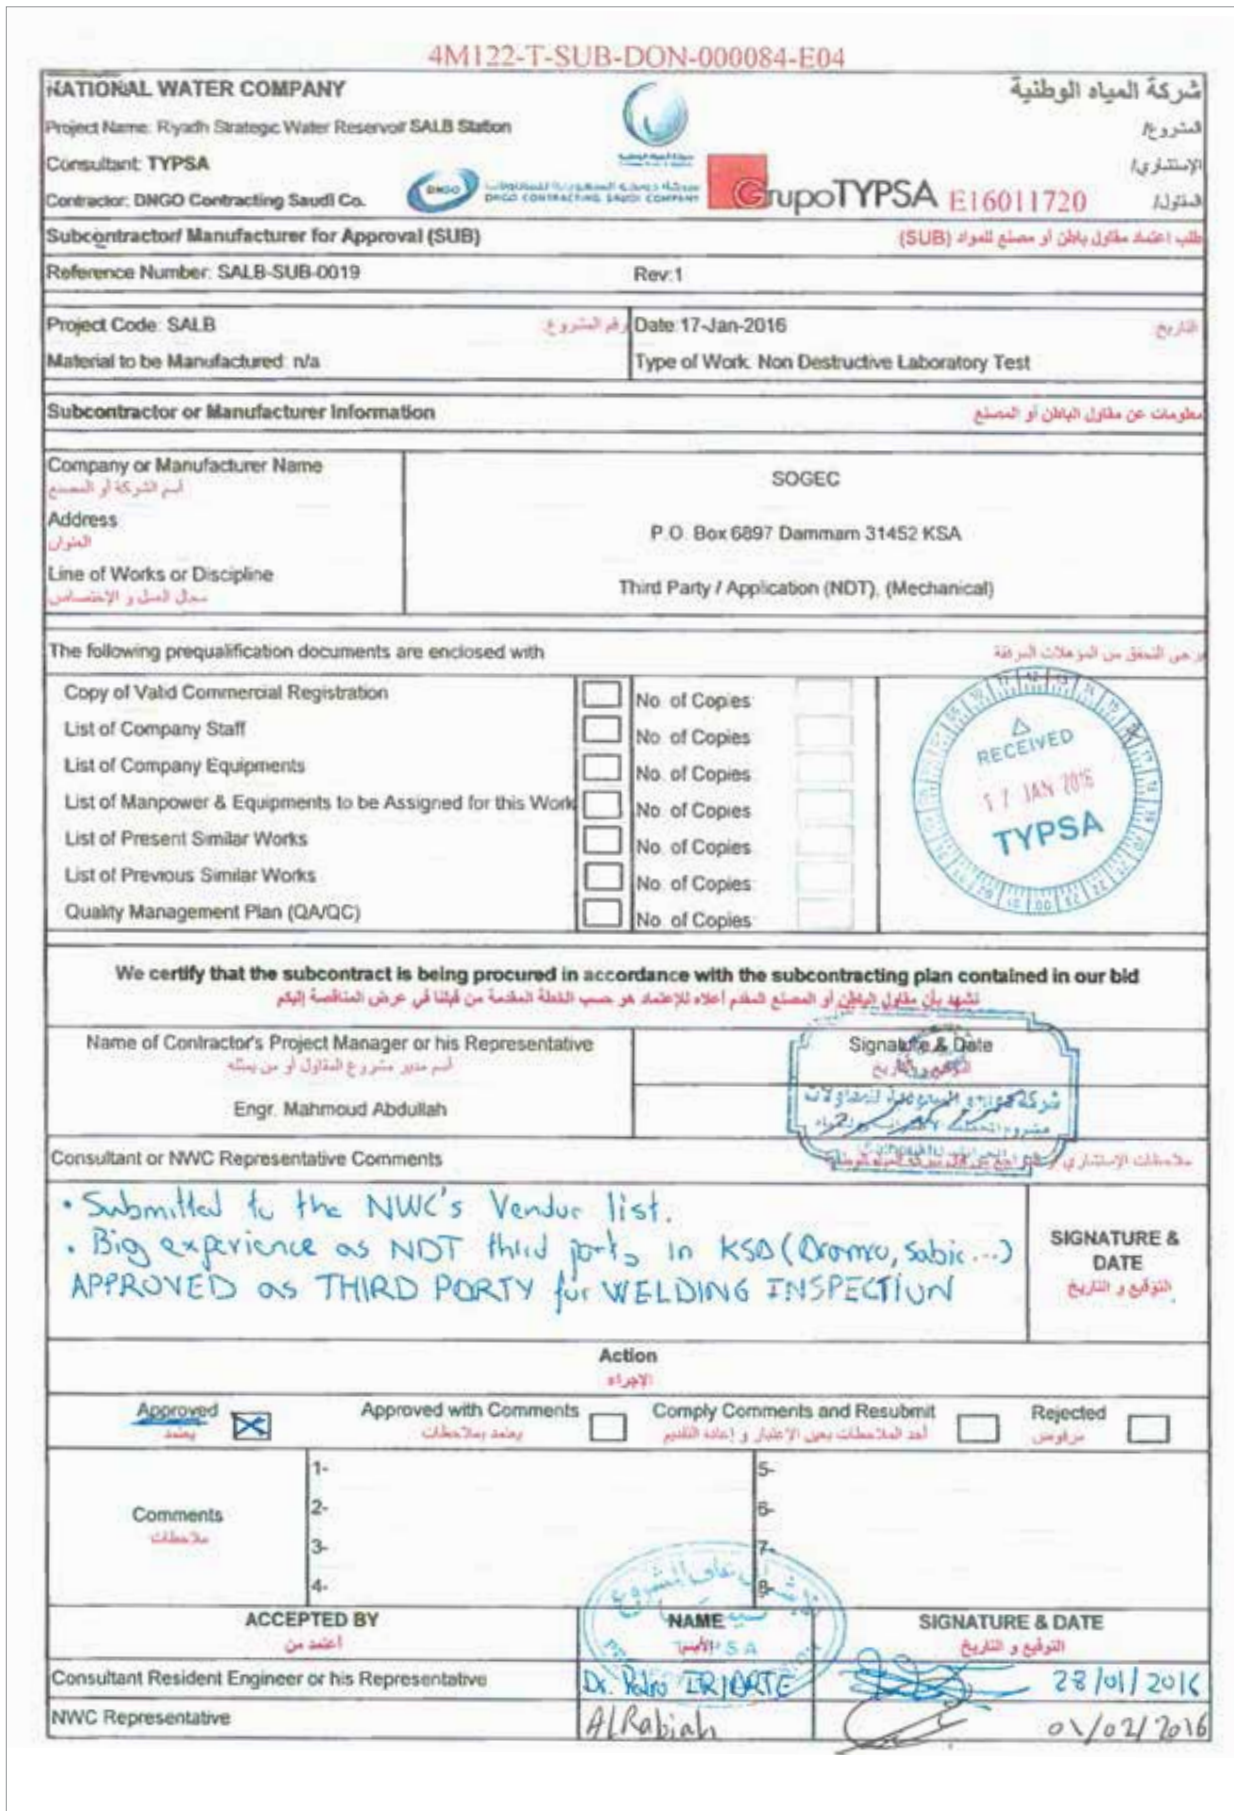 4M122-T-SUB-DON-000084-E04
NATIONAL WATER COMPANY
شركة المياه الوطنية
Project Name: Riyadh Strategic Water Reservoir SALB Station
المشروع/
Consultant: TYPSA
الإستشاري/
Contractor: DNGO Contracting Saudi Co.
DNGO
DNGO CONTRACTING SAUDI COMPANY
GrupoTYPSA E16011720
المقاول/
Subcontractor/ Manufacturer for Approval (SUB)
طلب اعتماد مقاول باطن أو مصنع للمواد (SUB)
Reference Number: SALB-SUB-0019
Rev:1
Project Code: SALB
رقم المشروع:
Date:17-Jan-2016
التاريخ:
Material to be Manufactured: n/a
Type of Work: Non Destructive Laboratory Test
Subcontractor or Manufacturer Information
معلومات عن مقاول الباطن أو المصنع
Company or Manufacturer Name
أسم الشركة أو المصنع
SOGEC
Address
العنوان
P.O. Box 6897 Dammam 31452 KSA
Line of Works or Discipline
مجال العمل و الإختصاص
Third Party / Application (NDT), (Mechanical)
The following prequalification documents are enclosed with
يرجى التحقق من المؤهلات المرفقة
Copy of Valid Commercial Registration
No. of Copies:
List of Company Staff
No. of Copies:
List of Company Equipments
No. of Copies:
List of Manpower & Equipments to be Assigned for this Work
No. of Copies:
List of Present Similar Works
No. of Copies:
List of Previous Similar Works
No. of Copies:
Quality Management Plan (QA/QC)
No. of Copies:
RECEIVED
17 JAN 2016
TYPSA
We certify that the subcontract is being procured in accordance with the subcontracting plan contained in our bid
نشهد بأن مقاول الباطن أو المصنع المقدم أعلاه للإعتماد هو حسب الخطة المقدمة من قبلنا في عرض المناقصة إليكم
Name of Contractor's Project Manager or his Representative
أسم مدير مشروع المقاول أو من يمثله
Signature & Date
التوقيع و التاريخ
Engr. Mahmoud Abdullah
Consultant or NWC Representative Comments
• Submitted to the NWC's Vendor list.
• Big experience as NDT third party in KSA (Aramco, Sabic...)
APPROVED as THIRD PARTY for WELDING INSPECTION
SIGNATURE &
DATE
التوقيع و التاريخ
Action
الإجراء
Approved
يعتمد
Approved with Comments
يعتمد بملاحظات
Comply Comments and Resubmit
أخذ الملاحظات بعين الإعتبار و إعادة التقديم
Rejected
مرفوض
Comments
ملاحظات
1-
2-
3-
4-
5-
6-
7-
8-
ACCEPTED BY
أعتمد من
NAME
الأسم
TYPSA
SIGNATURE & DATE
التوقيع و التاريخ
Consultant Resident Engineer or his Representative
Dr. Pedro IRIARTE
28/01/2016
NWC Representative
AlRabiah
01/02/2016